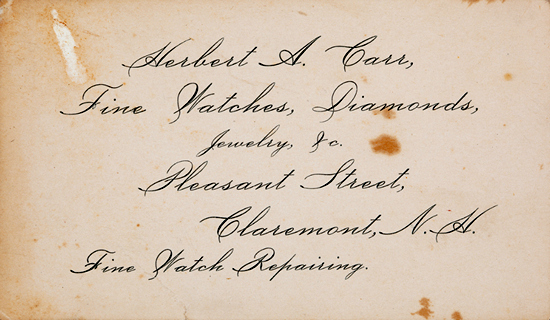 Herbert A. Carr,
Fine Watches, Diamonds,
Jewelry, &c.
Pleasant Street,
Claremont, N. H.
Fine Watch Repairing.